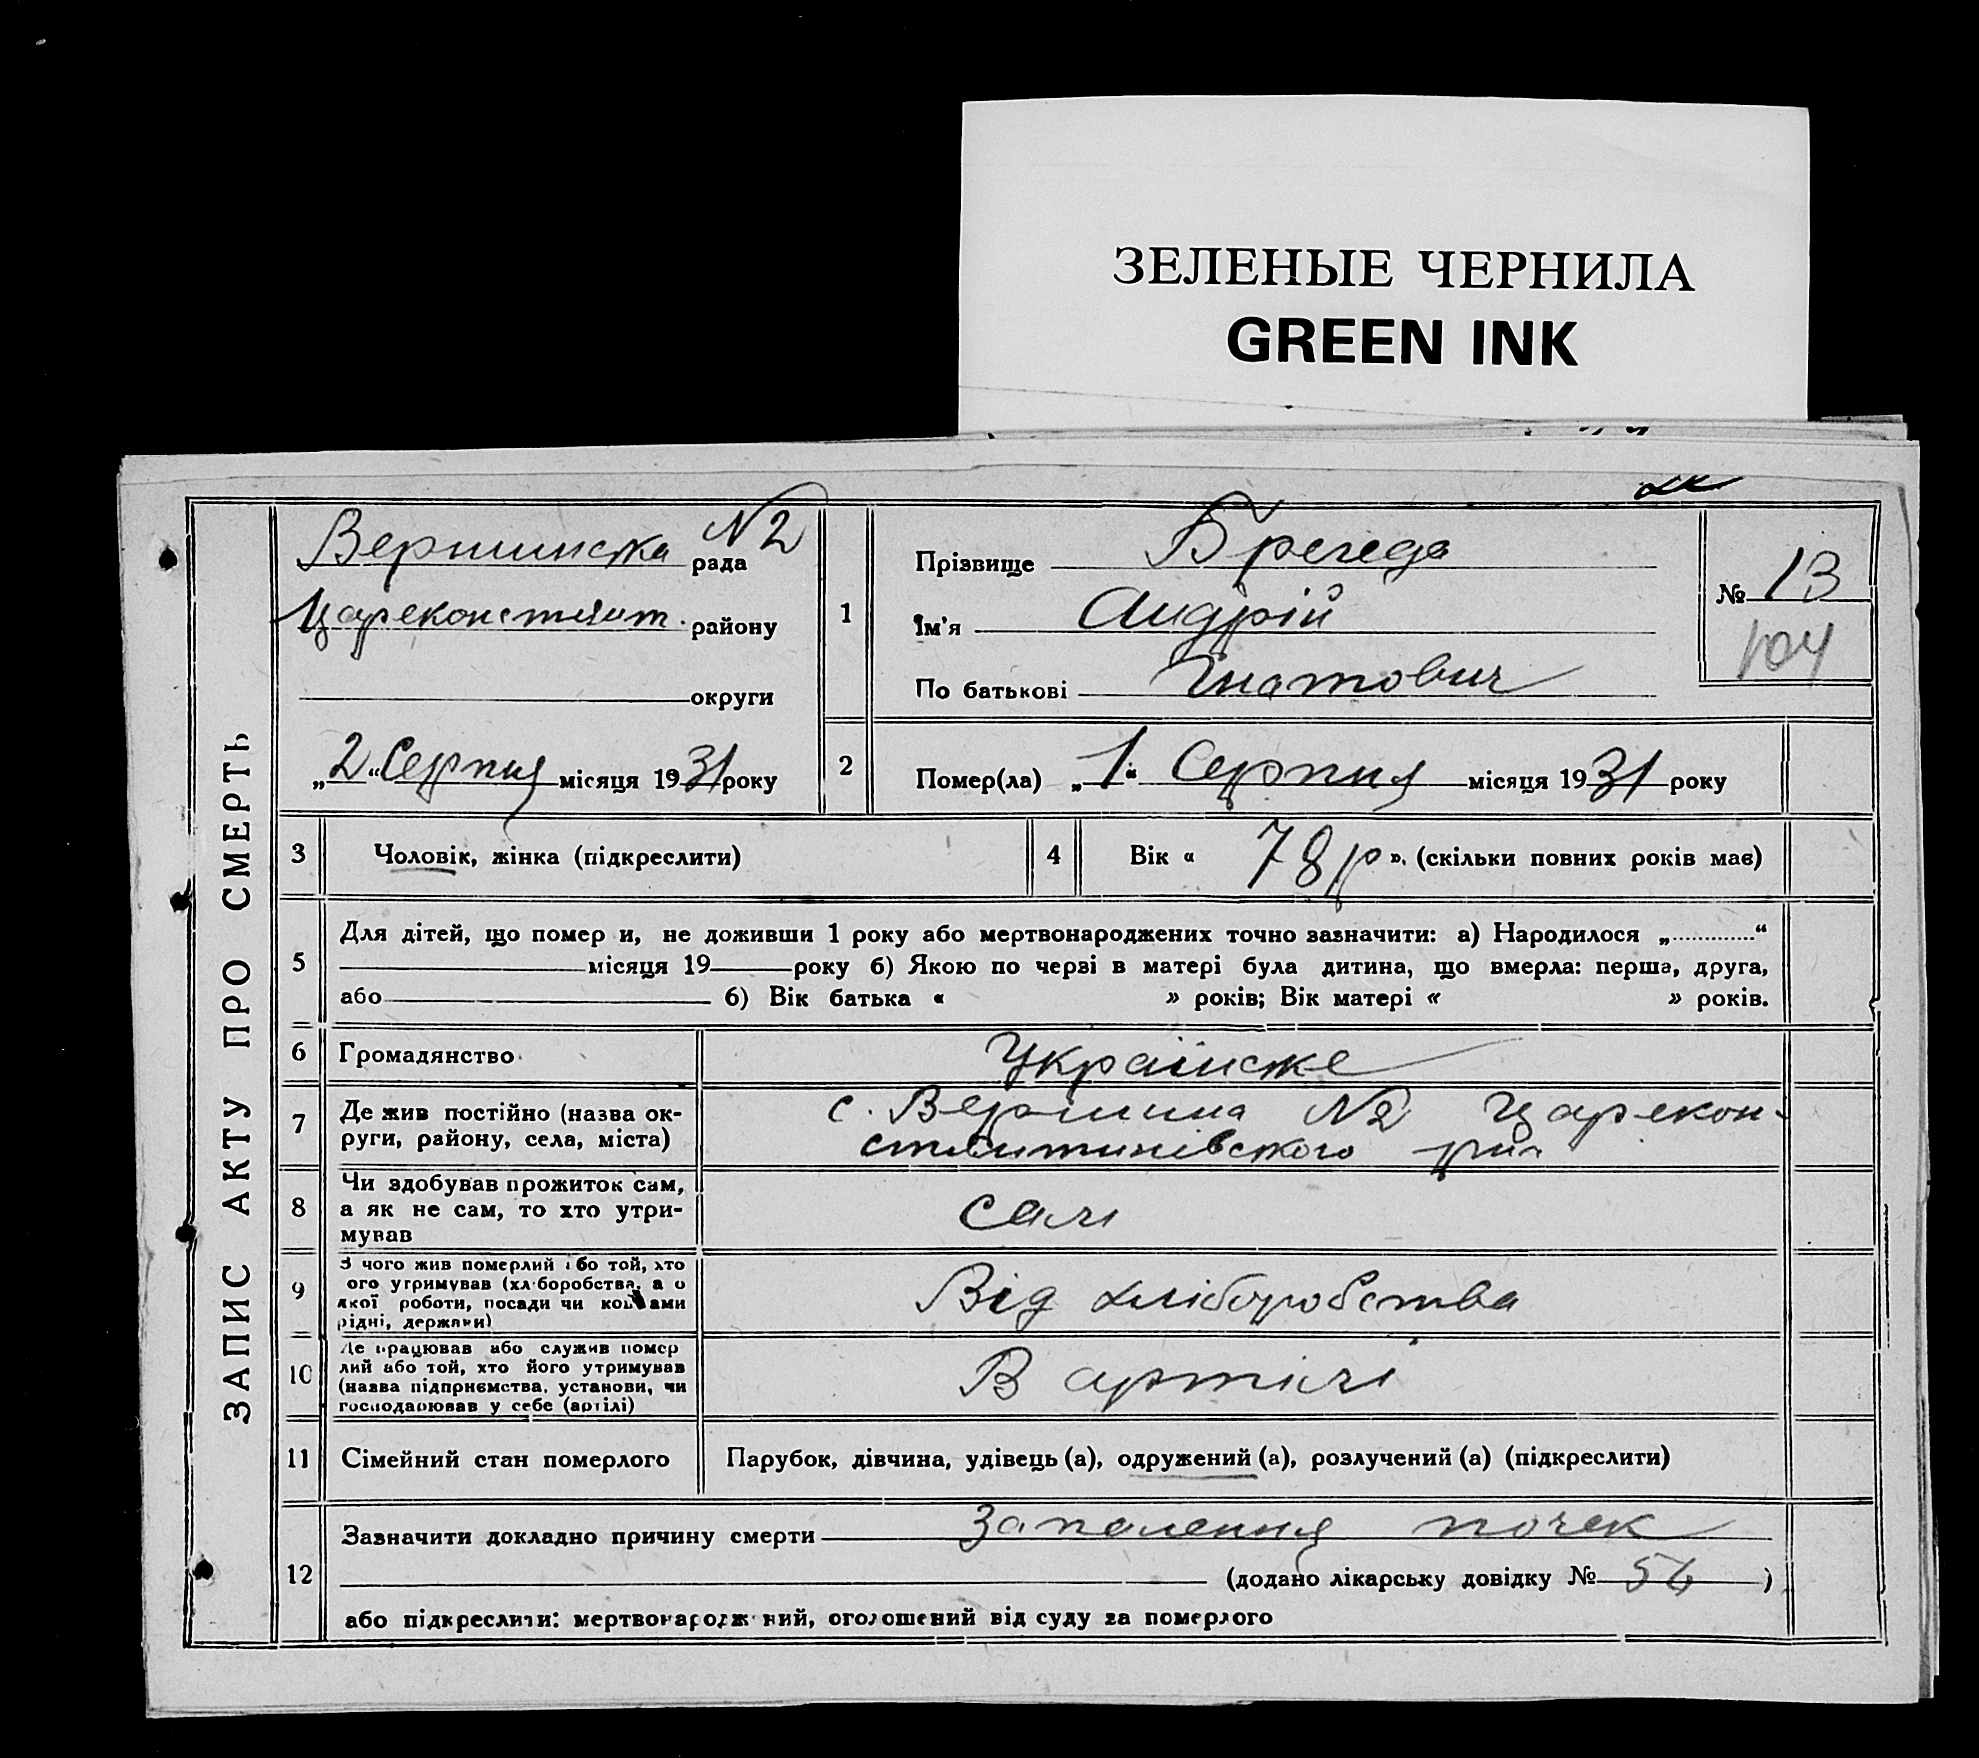 ЗЕЛЕНЫЕ ЧЕРНИЛА
GREEN INK
ЗАПИС АКТУ ПРО СМЕРТЬ
Вершинська N2 рада
Цареконстянт. району
округи
„2“ Серпня місяця 1931 року
1
Прізвище Брегеда
Ім'я Андрій
По батькові Гнатович
№ 13
104
2
Помер(ла) „1“ Серпня місяця 1931 року
3 Чоловік, жінка (підкреслити)
4 Вік « 78 р ». (скільки повних років має)
5
Для дітей, що помер и, не доживши 1 року або мертвонароджених точно зазначити: а) Народилося „.............“
місяця 19 року б) Якою по черзі в матері була дитина, що вмерла: перша, друга,
або б) Вік батька « » років; Вік матері « » років.
6 Громадянство Українське
7
Де жив постійно (назва ок-
руги, району, села, міста)
с. Вершина N2 Царекон-
стянтинівского р-ну
8
Чи здобував прожиток сам,
а як не сам, то хто утри-
мував
сам
9
З чого жив померлий або той, хто
ого утримував (хл боробства, а о
якої роботи, посади чи коштами
рідні, держави)
Від хліборобства
10
Де працював або служив помер
лий або той, хто його утримував
(назва підприємства, установи, чи
господарював у себе (артілі)
В артілі
11 Сімейний стан померлого
Парубок, дівчина, удівець (а), одружений (а), розлучений (а) (підкреслити)
12
Зазначити докладно причину смерти Запалення почек
(додано лікарську довідку № 56 )
або підкреслити: мертвонародж ний, оголошений від суду за померлого